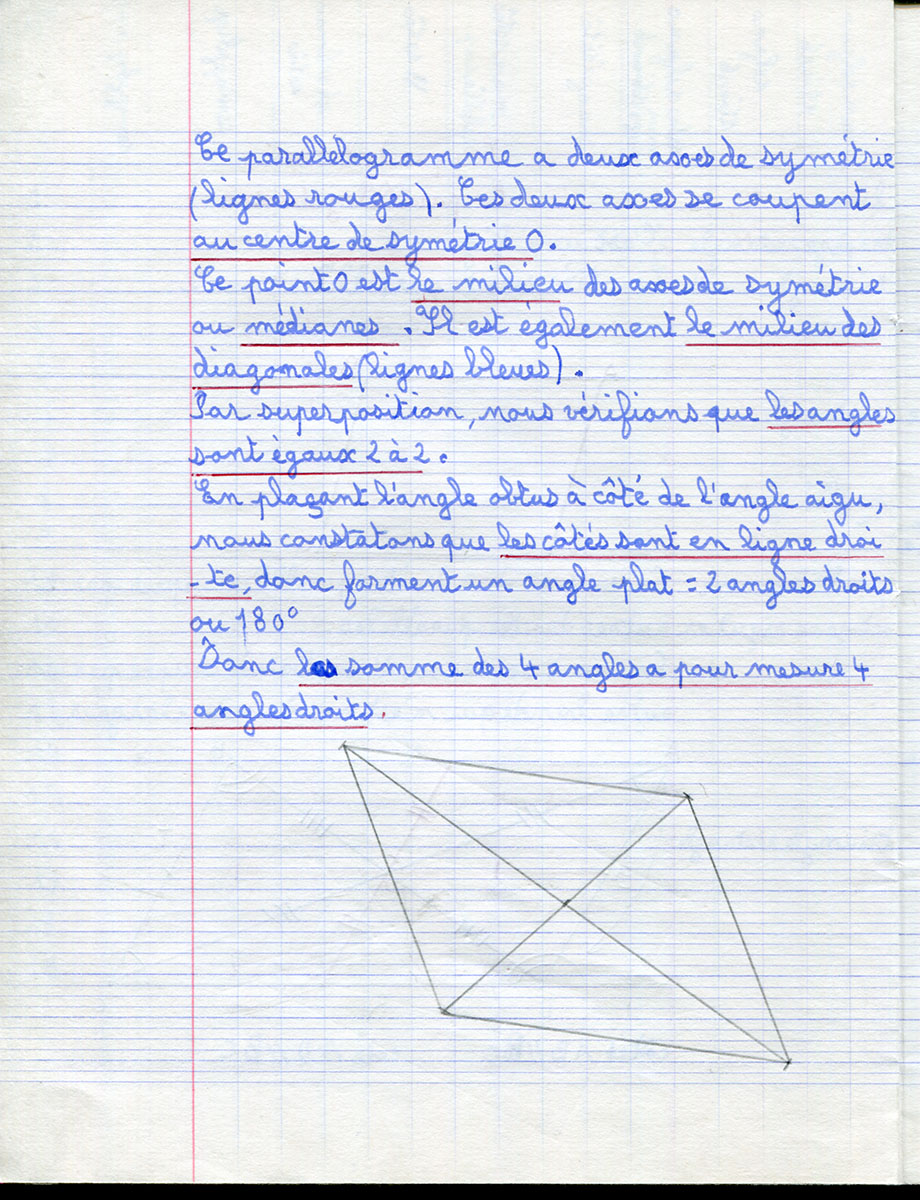 Ce parallélogramme a deux axes de symétrie
(lignes rouges). Ces deux axes se coupent
au centre de symétrie O.
Ce point O est le milieu des axes de symétrie
ou médianes. Il est également le milieu des
diagonales (lignes bleues).
Par superposition, nous vérifions que les angles
sont égaux 2 à 2.
En plaçant l'angle obtus à côté de l'angle aigu,
nous constatons que les côtés sont en ligne droi
-te, donc forment un angle plat = 2 angles droits
ou 180°
Donc la somme des 4 angles a pour mesure 4
angles droits.